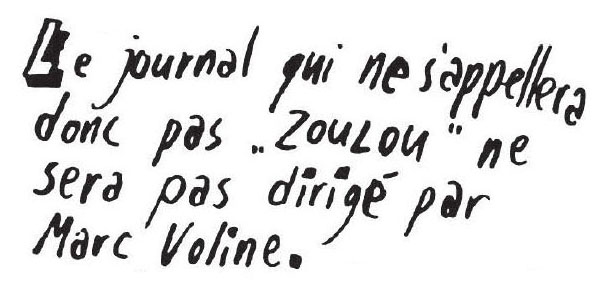 Le journal qui ne s'appellera
donc pas „ZOULOU" ne
sera pas dirigé par
Marc Voline.